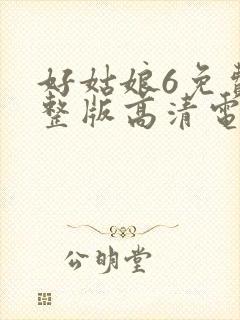 好姑娘6免費
整版高清電
公明堂